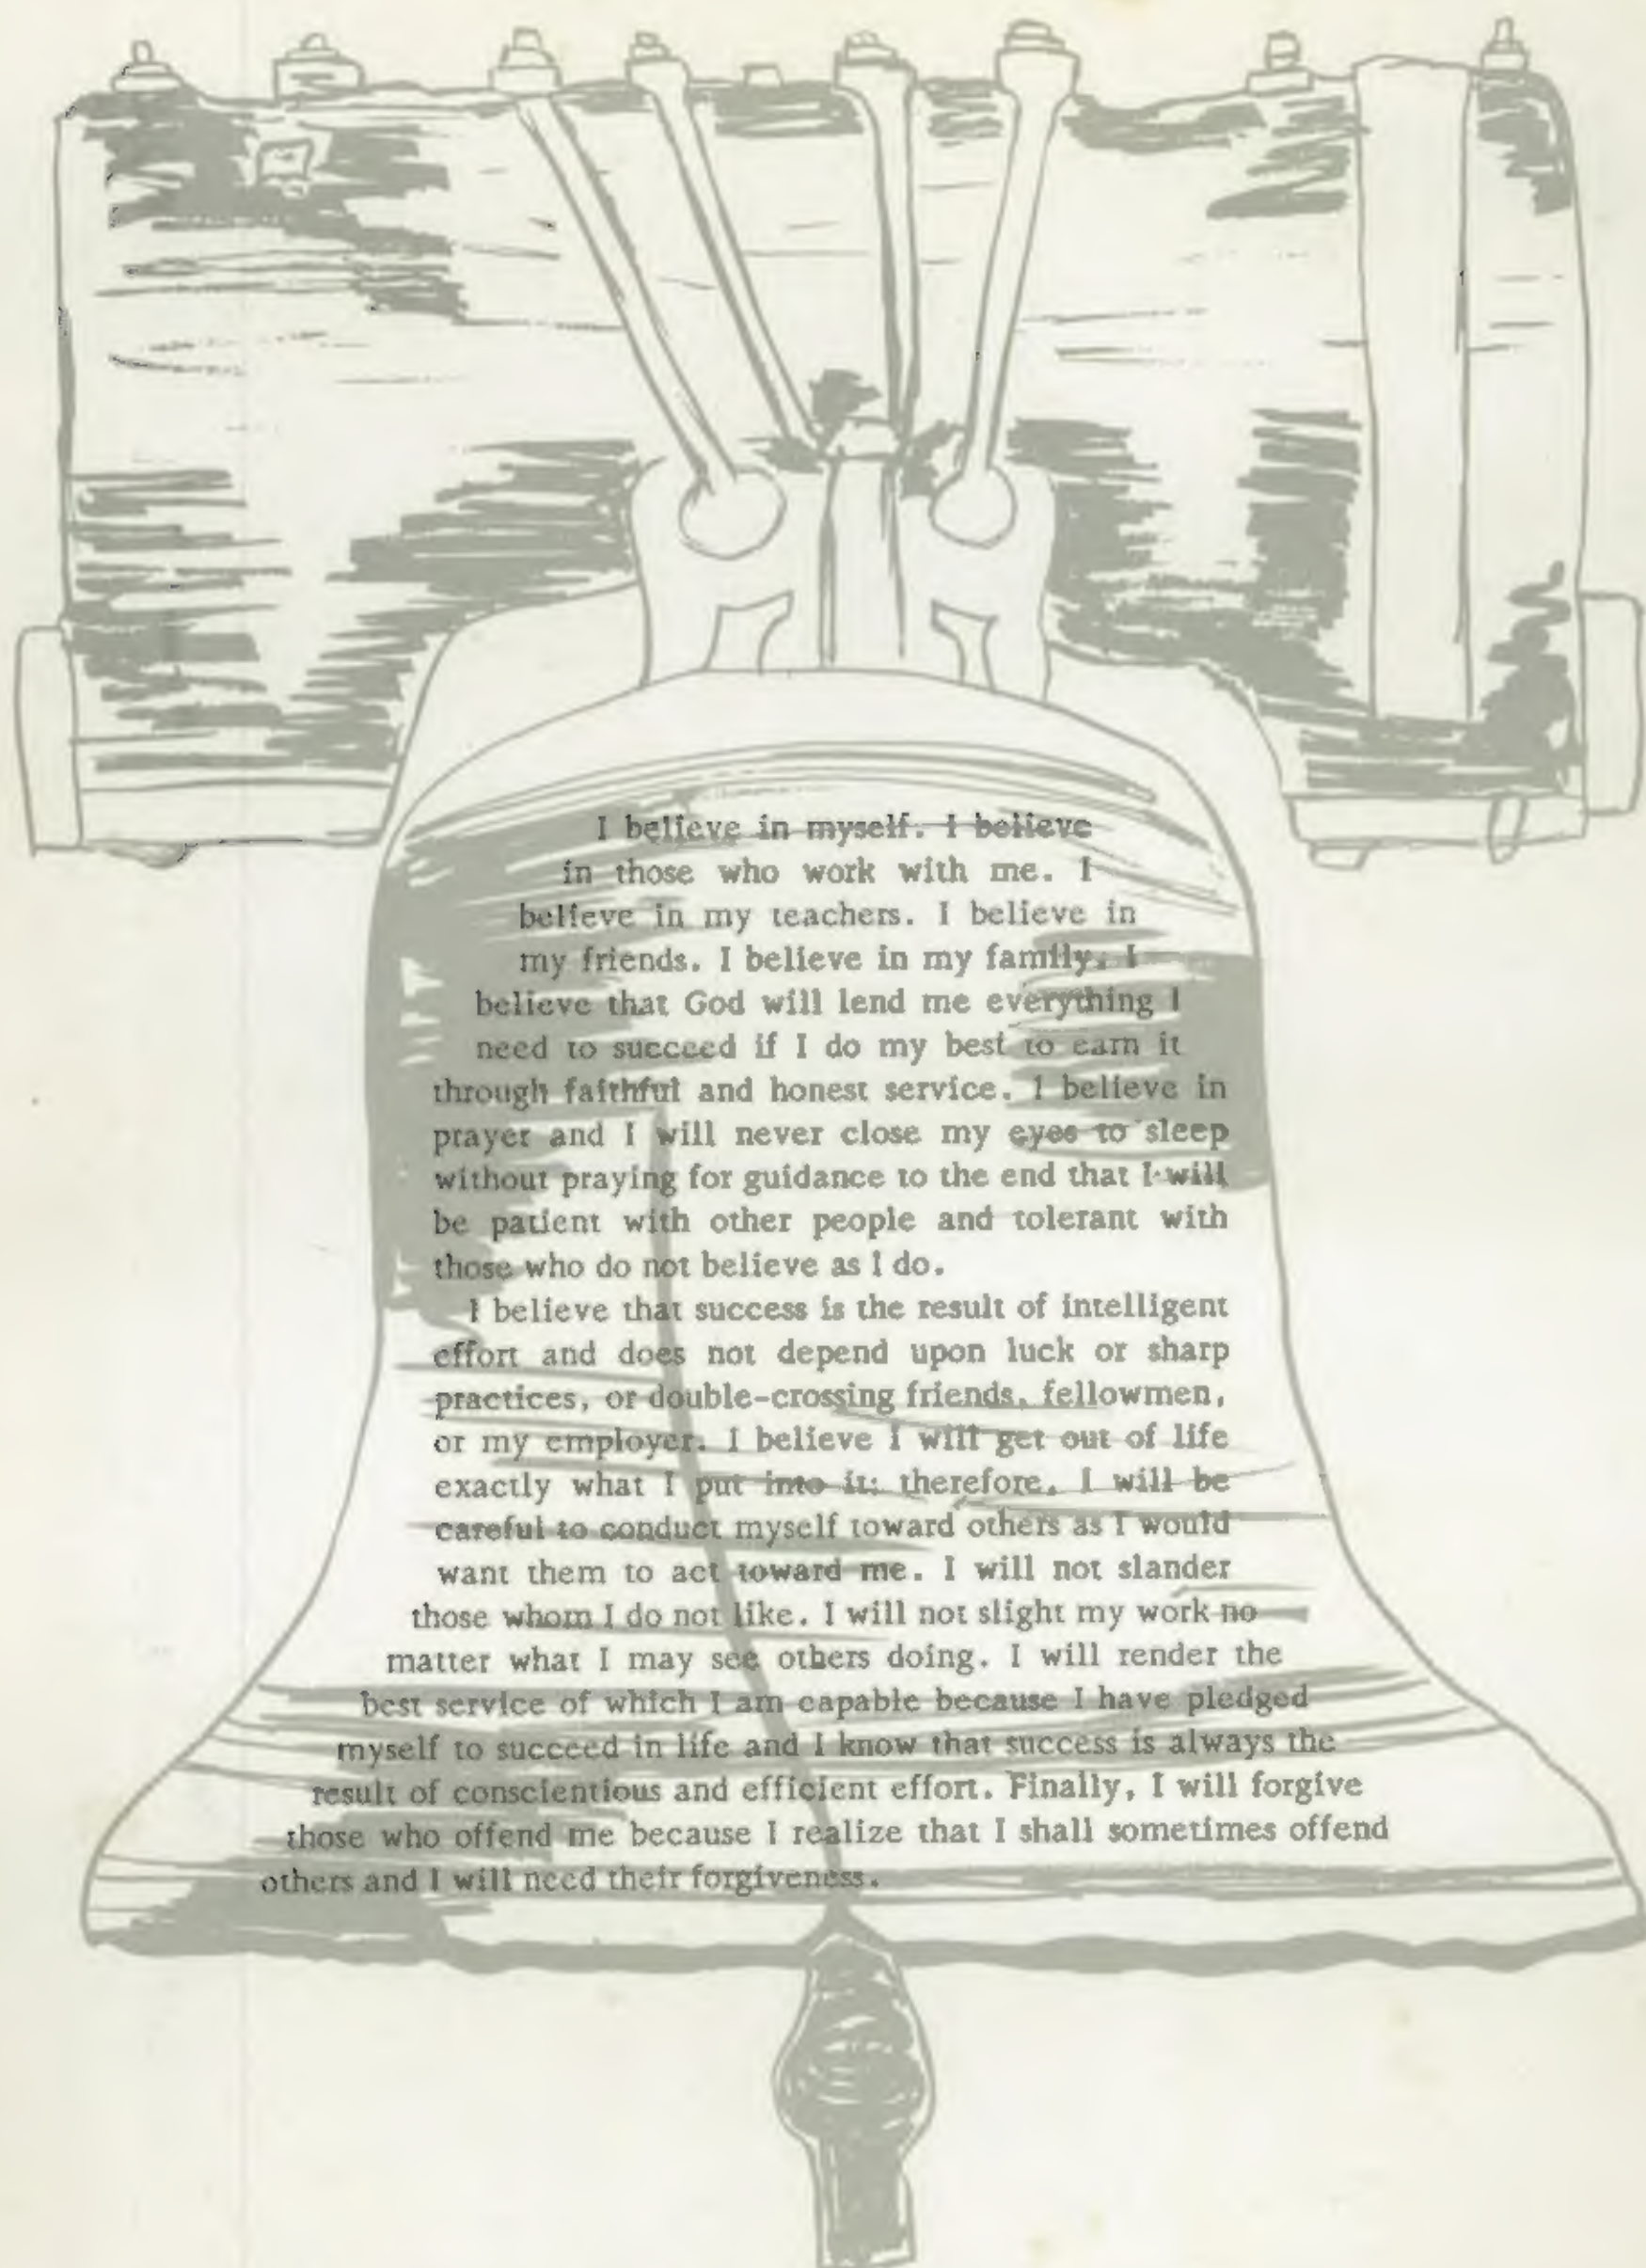 I believe in myself. I believe
in those who work with me. I
believe in my teachers. I believe in
my friends. I believe in my family. I
believe that God will lend me everything I
need to succeed if I do my best to earn it
through faithful and honest service. I believe in
prayer and I will never close my eyes to sleep
without praying for guidance to the end that I will
be patient with other people and tolerant with
those who do not believe as I do.
I believe that success is the result of intelligent
effort and does not depend upon luck or sharp
practices, or double-crossing friends, fellowmen,
or my employer. I believe I will get out of life
exactly what I put into it; therefore, I will be
careful to conduct myself toward others as I would
want them to act toward me. I will not slander
those whom I do not like. I will not slight my work no
matter what I may see others doing. I will render the
best service of which I am capable because I have pledged
myself to succeed in life and I know that success is always the
result of conscientious and efficient effort. Finally, I will forgive
those who offend me because I realize that I shall sometimes offend
others and I will need their forgiveness.